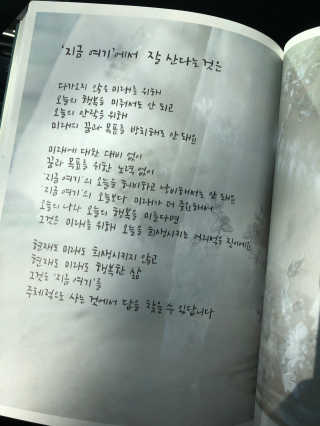 '지금 여기'에서 잘 산다는 것은
다가오지 않은 미래를 위해
오늘의 행복을 미뤄서도 안 되고
오늘의 안락을 위해
미래의 꿈과 목표를 방치해도 안 돼요
미래에 대한 대비 없이
꿈과 목표를 위한 노력 없이
'지금 여기'의 오늘을 허비하고 낭비해서도 안 돼요
'지금 여기'의 오늘보다 미래가 더 중요해서
오늘의 나와 오늘의 행복을 미룬다면
그것은 미래를 위해 오늘을 희생시키는 어리석은 일이에요
현재도 미래도 희생시키지 않고
현재도 미래도 행복한 삶
그것은 '지금 여기'를
주체적으로 사는 것에서 답을 찾을 수 있답니다